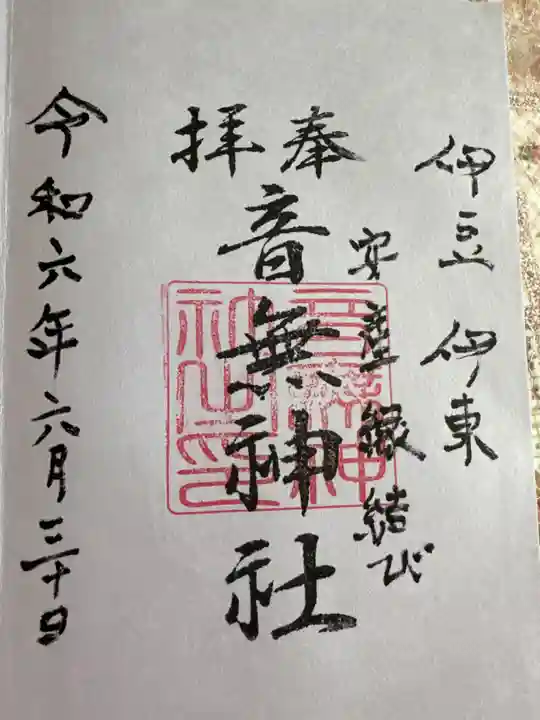 伊豆 伊東
安産 縁結び
奉拝
音無神社
音無神社之印
令和六年六月三十日